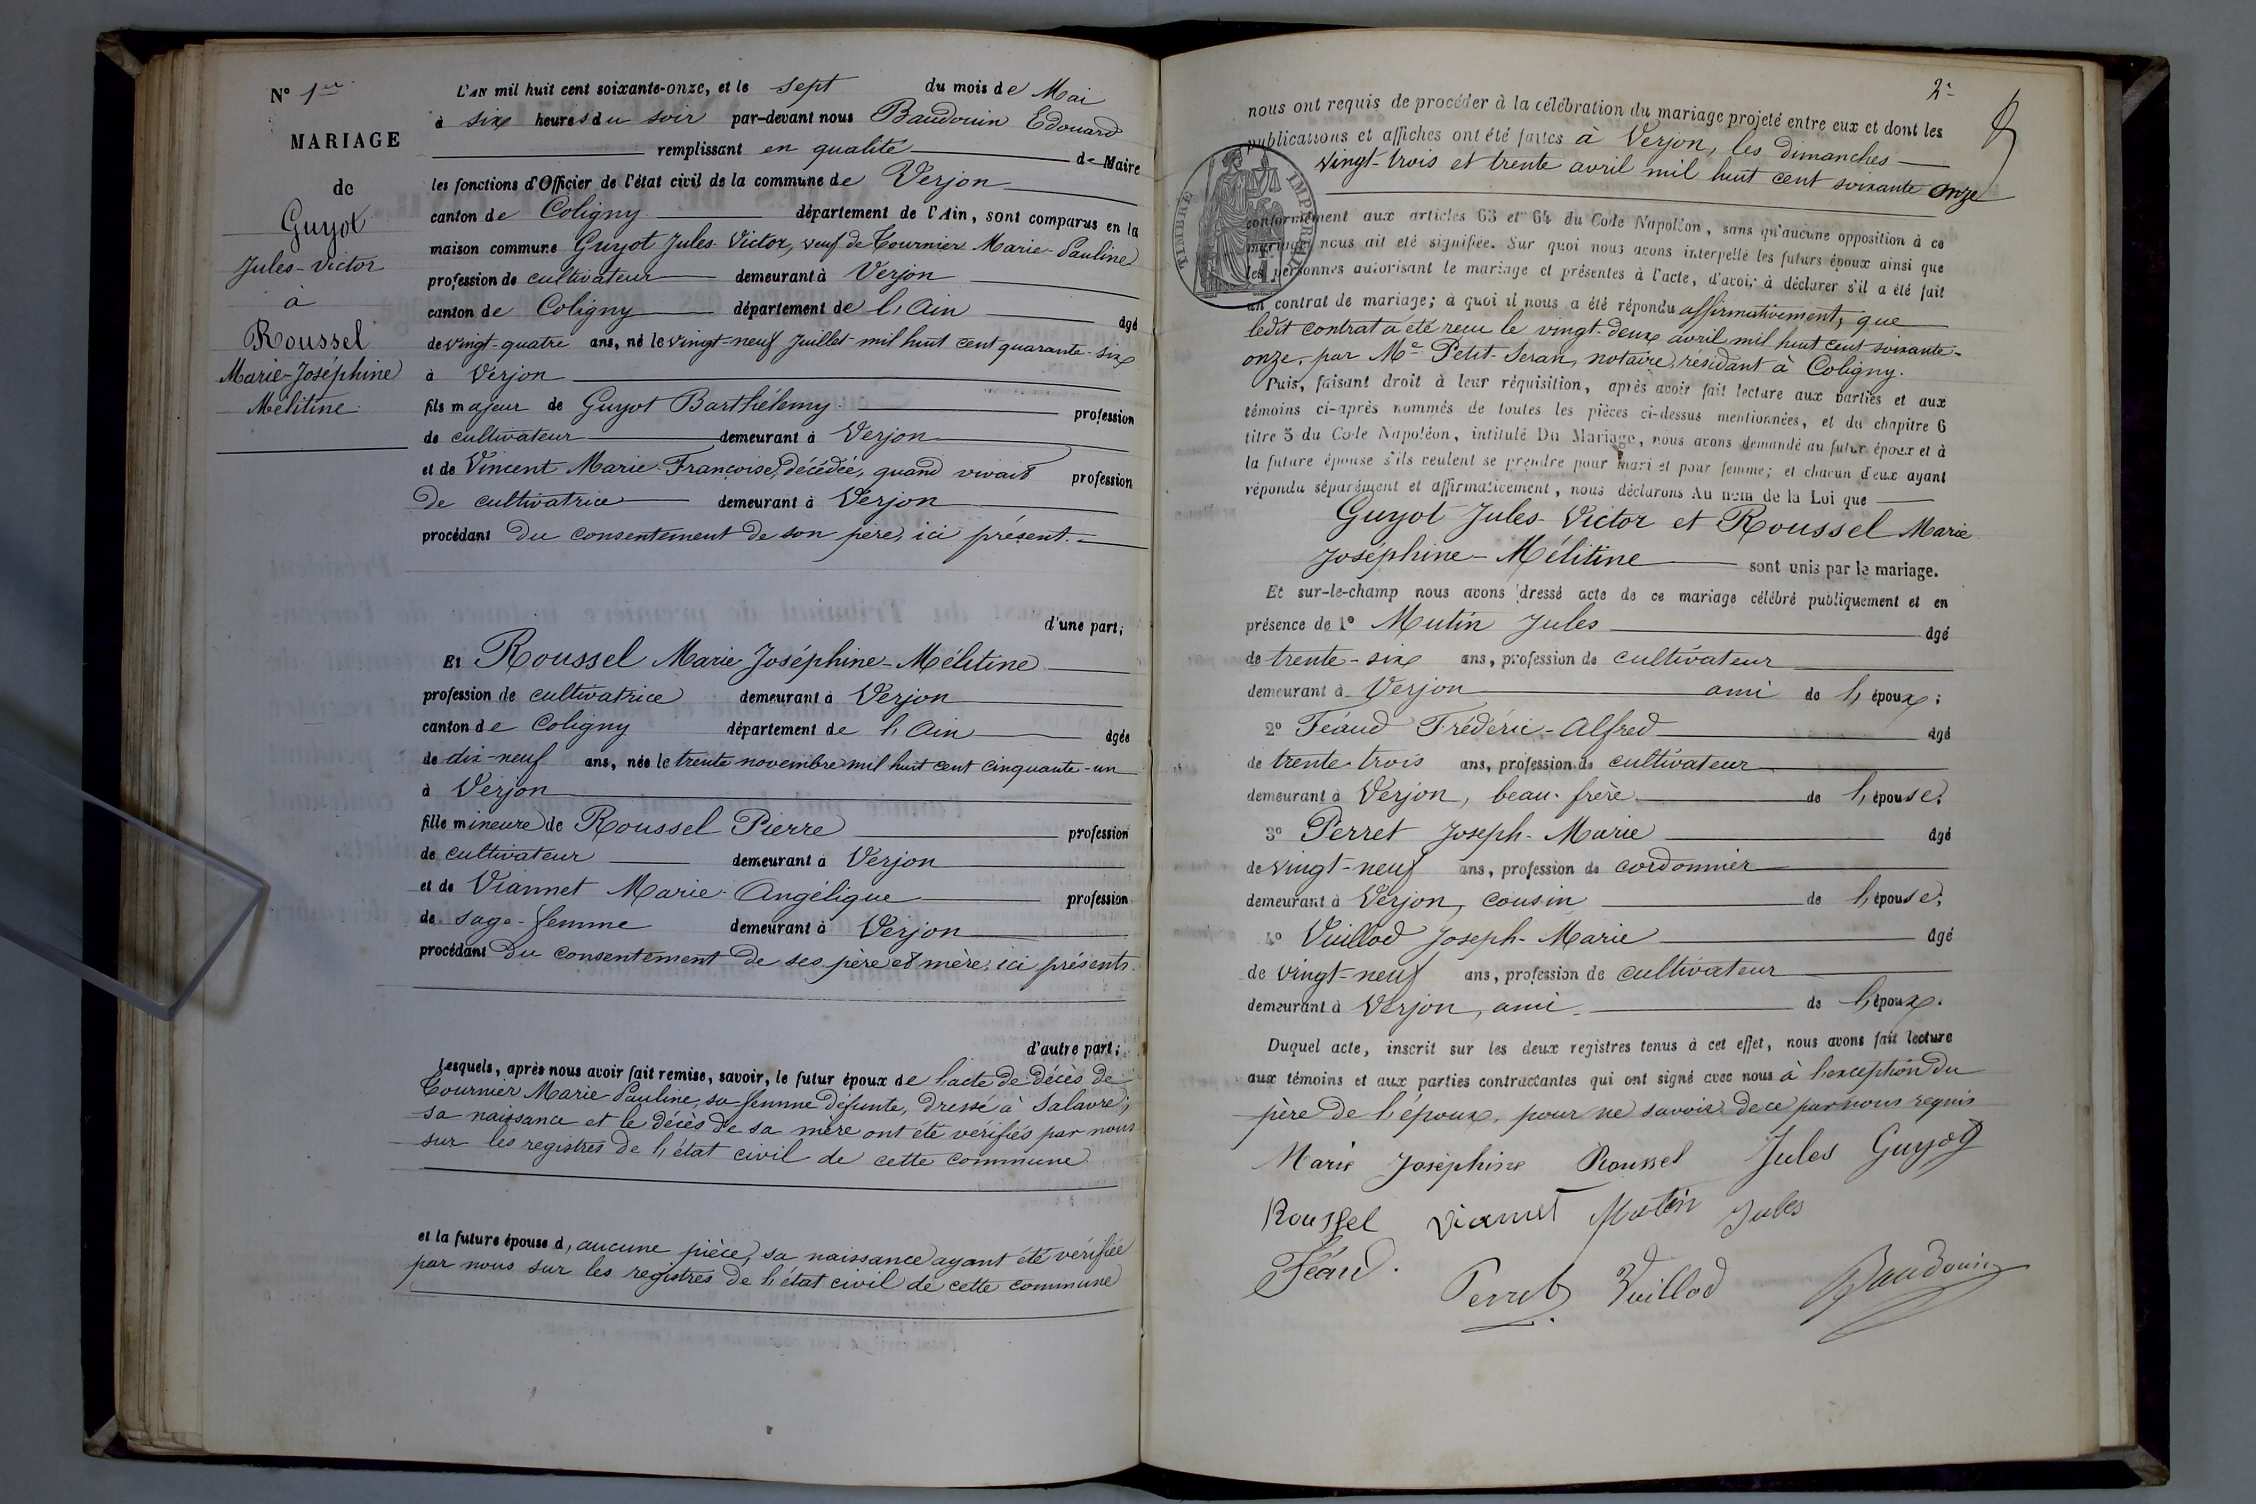 N° 1er
MARIAGE
de
Guyot
Jules-Victor
à
Roussel
Marie-Joséphine
Mélitine
L'AN mil huit cent soixante-onze, et le sept du mois de Mai
à six heures du soir par-devant nous Baudouin Edouard
remplissant en qualité de Maire
les fonctions d'Officier de l'état civil de la commune de Verjon
canton de Coligny département de l'Ain, sont comparus en la
maison commune Guyot Jules-Victor, veuf de Tournier Marie-Pauline
profession de cultivateur demeurant à Verjon
canton de Coligny département de l'Ain âgé
de vingt-quatre ans, né le vingt-neuf Juillet mil huit cent quarante-six
à Verjon
fils majeur de Guyot Barthélemy profession
de cultivateur demeurant à Verjon
et de Vincent Marie-Françoise, décédée, quand vivait profession
de cultivatrice demeurant à Verjon
procédant du consentement de son père, ici présent.
d'une part;
Et Roussel Marie Joséphine-Mélitine
profession de cultivatrice demeurant à Verjon
canton de Coligny département de l'Ain âgée
de dix-neuf ans, née le trente novembre mil huit cent cinquante-un
à Verjon
fille mineure de Roussel Pierre profession
de cultivateur demeurant à Verjon
et de Viannet Marie-Angélique profession
de sage-femme demeurant à Verjon
procédant du consentement de ses père et mère, ici présents.
d'autre part;
Lesquels, après nous avoir fait remise, savoir, le futur époux de l'acte de décès de
Tournier Marie Pauline, sa femme défunte, dressé à Salavre;
sa naissance et le décès de sa mère ont été vérifiés par nous
sur les registres de l'état civil de cette commune
et la future épouse d'aucune pièce, sa naissance ayant été vérifiée
par nous sur les registres de l'état civil de cette commune
2e
nous ont requis de procéder à la célébration du mariage projeté entre eux et dont les
publications et affiches ont été faites à Verjon, les dimanches
vingt-trois et trente avril mil huit cent soixante onze
TIMBRE IMPÉRIAL
conformément aux articles 63 et 64 du Code Napoléon, sans qu'aucune opposition à ce
mariage nous ait été signifiée. Sur quoi nous avons interpellé les futurs époux ainsi que
les personnes autorisant le mariage et présentes à l'acte, d'avoir à déclarer s'il a été fait
un contrat de mariage; à quoi il nous a été répondu affirmativement, que
ledit contrat a été reçu le vingt-deux avril mil huit cent soixante-
onze, par Me Petit-Seran, notaire, résidant à Coligny.
Puis, faisant droit à leur réquisition, après avoir fait lecture aux parties et aux
témoins ci-après nommés de toutes les pièces ci-dessus mentionnées, et du chapitre 6
titre 5 du Code Napoléon, intitulé Du Mariage, nous avons demandé au futur époux et à
la future épouse s'ils veulent se prendre pour mari et pour femme; et chacun d'eux ayant
répondu séparément et affirmativement, nous déclarons Au nom de la Loi que
Guyot Jules-Victor et Roussel Marie
Joséphine-Mélitine sont unis par le mariage.
Et sur-le-champ nous avons dressé acte de ce mariage célébré publiquement et en
présence de 1° Mutin Jules âgé
de trente-six ans, profession de cultivateur
demeurant à Verjon ami de l'époux;
2° Féaud Frédéric-Alfred âgé
de trente-trois ans, profession de cultivateur
demeurant à Verjon, beau-frère de l'épouse;
3° Perret Joseph-Marie âgé
de vingt-neuf ans, profession de cordonnier
demeurant à Verjon, cousin de l'épouse;
4° Vuillod Joseph-Marie âgé
de vingt-neuf ans, profession de cultivateur
demeurant à Verjon, ami de l'époux.
Duquel acte, inscrit sur les deux registres tenus à cet effet, nous avons fait lecture
aux témoins et aux parties contractantes qui ont signé avec nous à l'exception du
père de l'époux, pour ne savoir de ce par nous requis
Marie Joséphine Roussel Jules Guyot
Roussel Viannet Mutin Jules
Féaud.
Perret Vuillod Baudouin